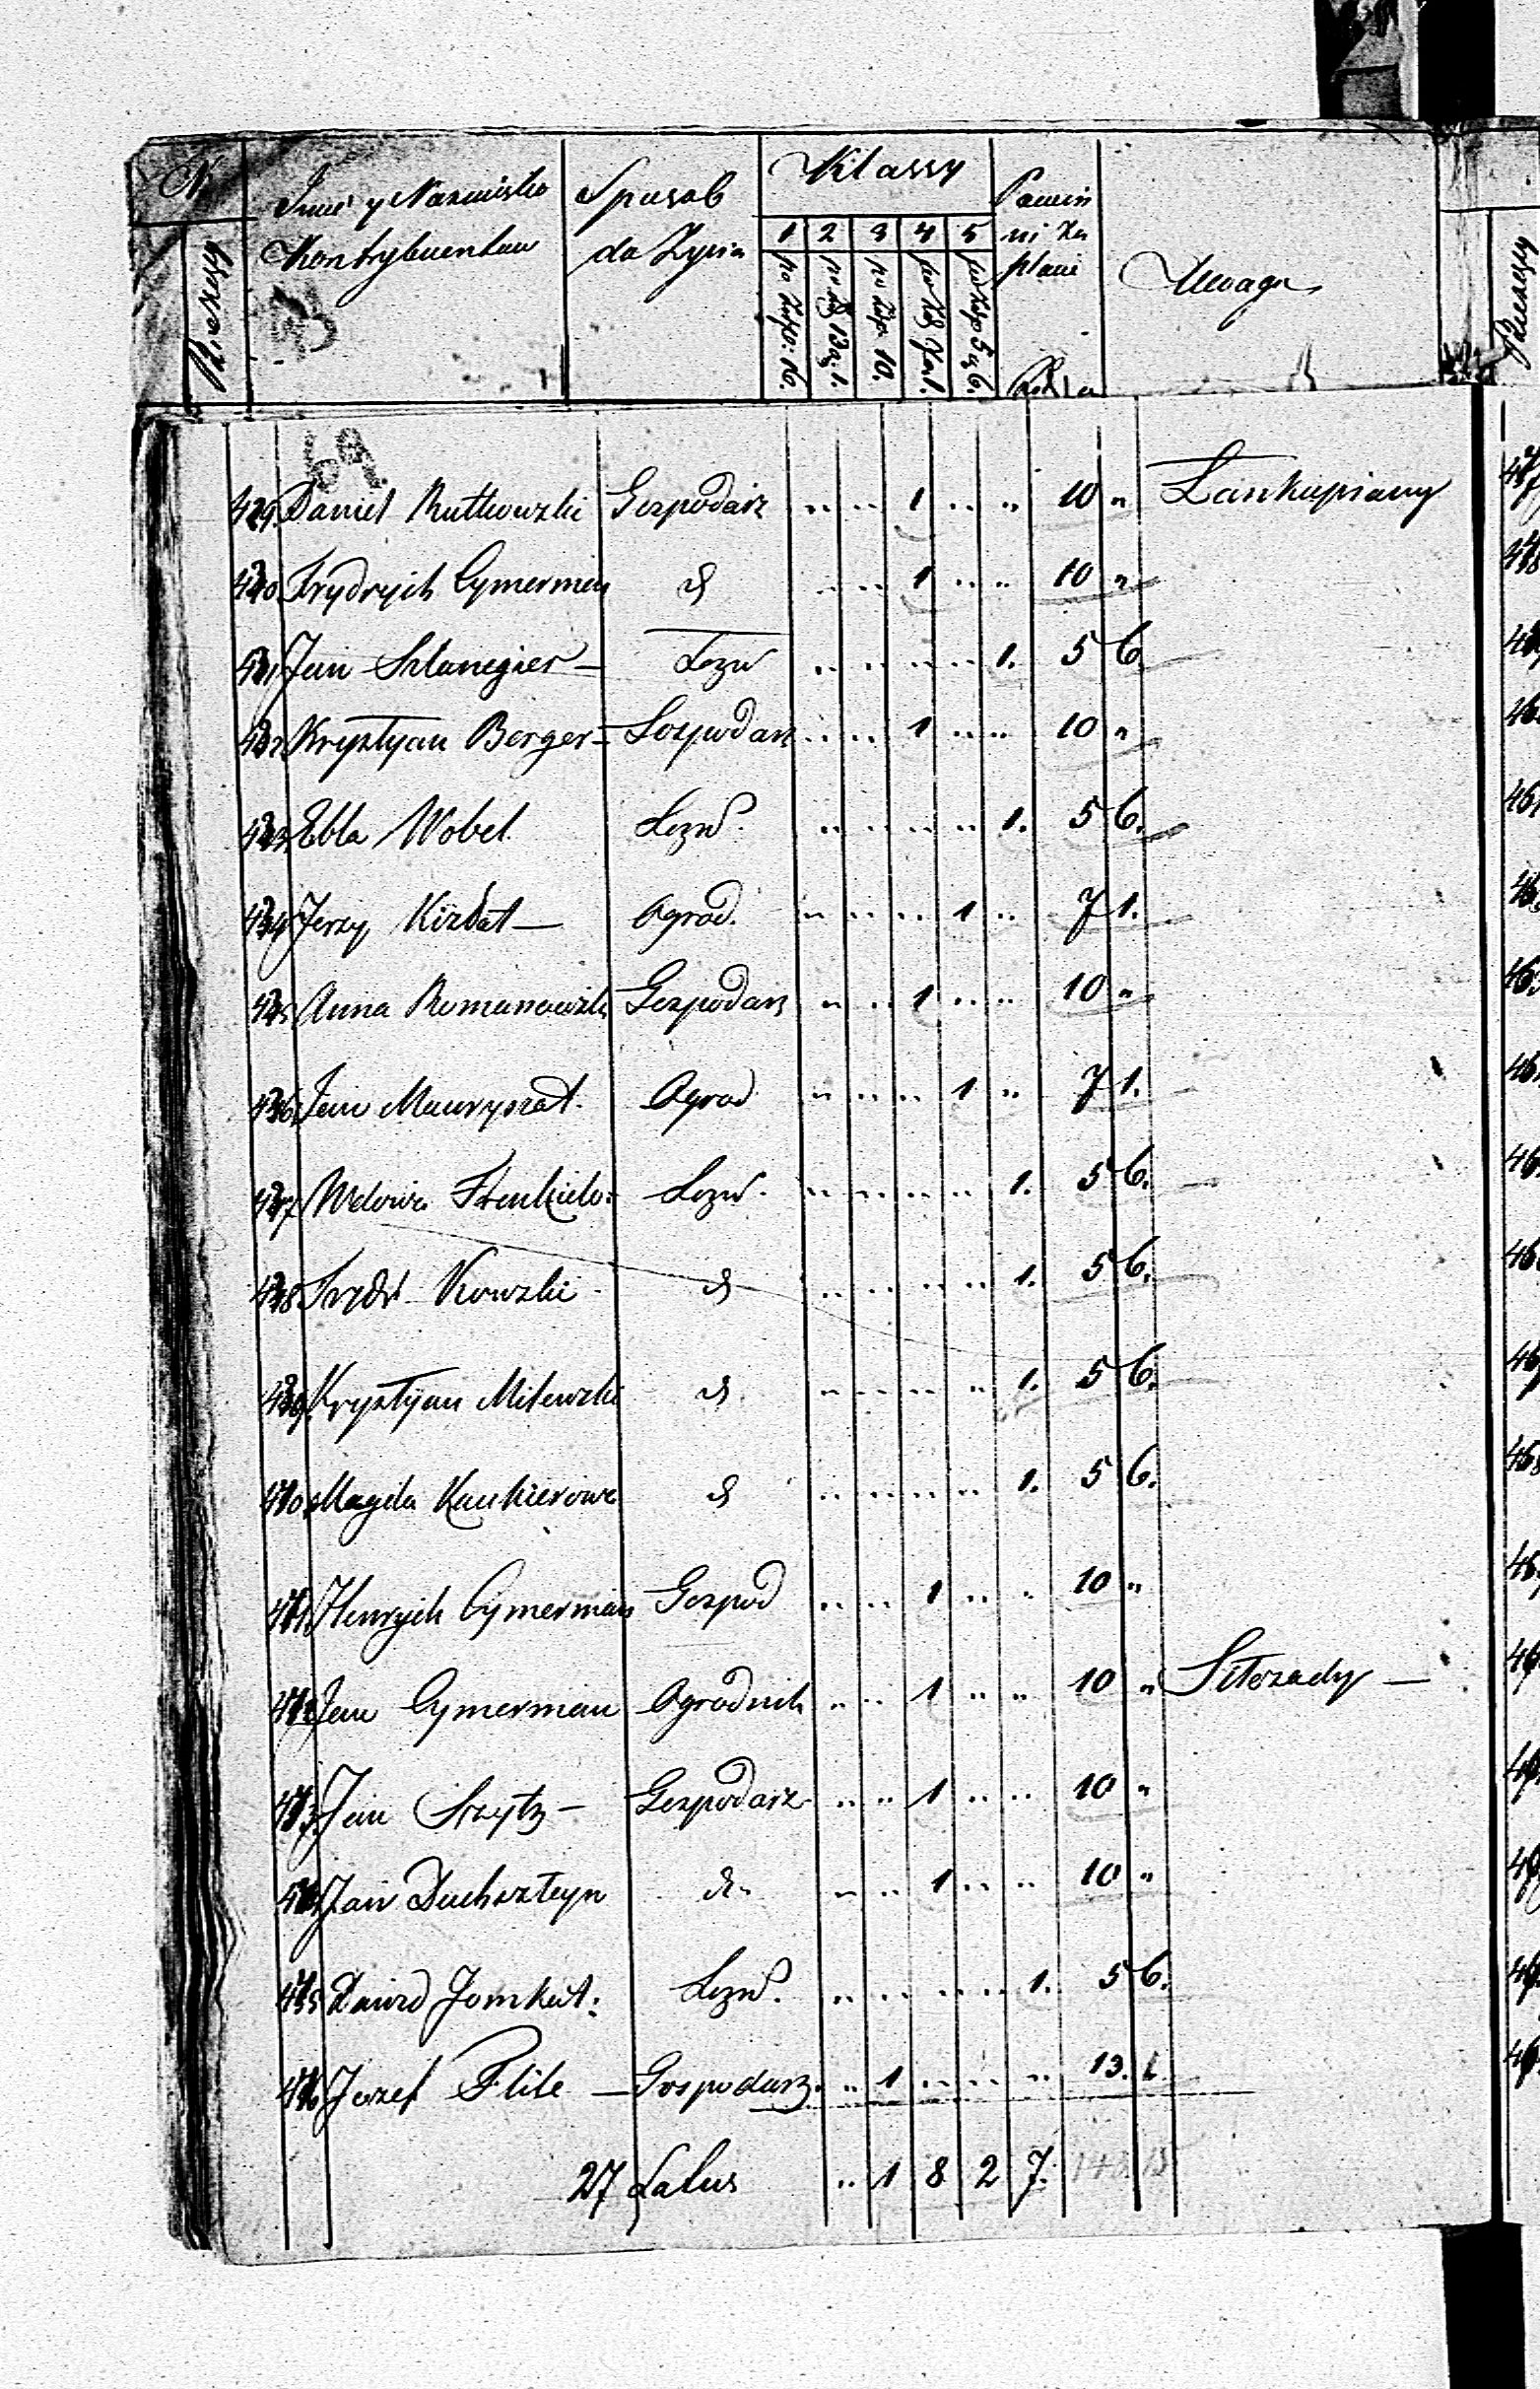 N.
Imie y Nazwisko
Kontrybuentow
Sposob
do Zycia
Klassy
1 2 3 4 5
po Złp: 16.
po Złp 13 g. 1.
po Złp 10.
po Złp 7 gr 1.
po Złp 5 g 6.
Powin
ni za
płacić
Uwaga
69.
429. Daniel Rutkowski Gospodarz " " 1 " " 10 " Lankupiany
430. Frydrych Cymerman d " " 1 " " 10 "
431. Jan Szlanegier — Lozn " " " " 1. 5 6.
432. Krystyan Berger — Gospodarz " " 1 " " 10 "
433. Ebla Wobel Lozn. " " " " 1. 5 6.
434. Jerzy Kizdat — Ogrod. " " " 1 " 7 1.
435. Anna Romanowska Gospodarz " " 1 " " 10 "
436. Jan Mauryszat. Ogrod " " " 1 " 7 1.
437. Wdowa Lozn. " " " " 1. 5 6.
438. Frydr Kowzki d " " " " 1. 5 6.
439. Krystyan Milewski d " " " " 1. 5 6.
440. Magda Kankierowa d " " " " 1. 5 6.
441. Henrych Cymerman Gospod " " 1 " " 10 "
442. Jan Cymerman Ogrodnik " " 1 " " 10 "
443. Jan Szytz — Gospodarz " " 1 " " 10 "
444. Jan Duchszteyn d " " 1 " " 10 "
445. Dawid Jomkat: Lozn. " " " " 1. 5 6.
446. Jozef Flile — Gospodarz " 1 " " " 13. 1.
27 Latus " 1 8 2 7.